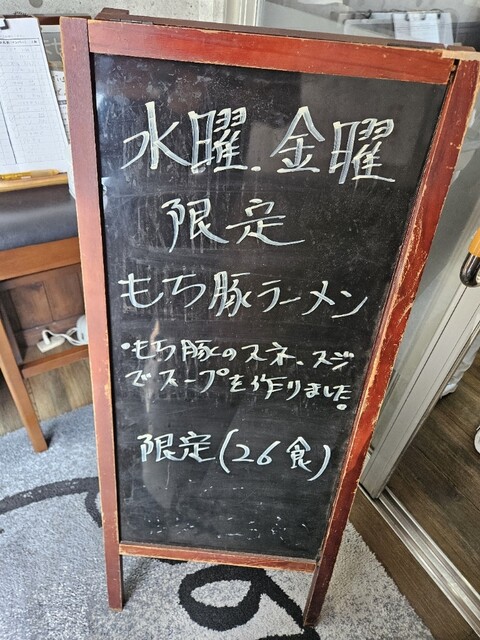 水曜.金曜
限定
もち豚ラーメン
・もち豚のスネ、スジ
でスープを作りました。
限定(26食)